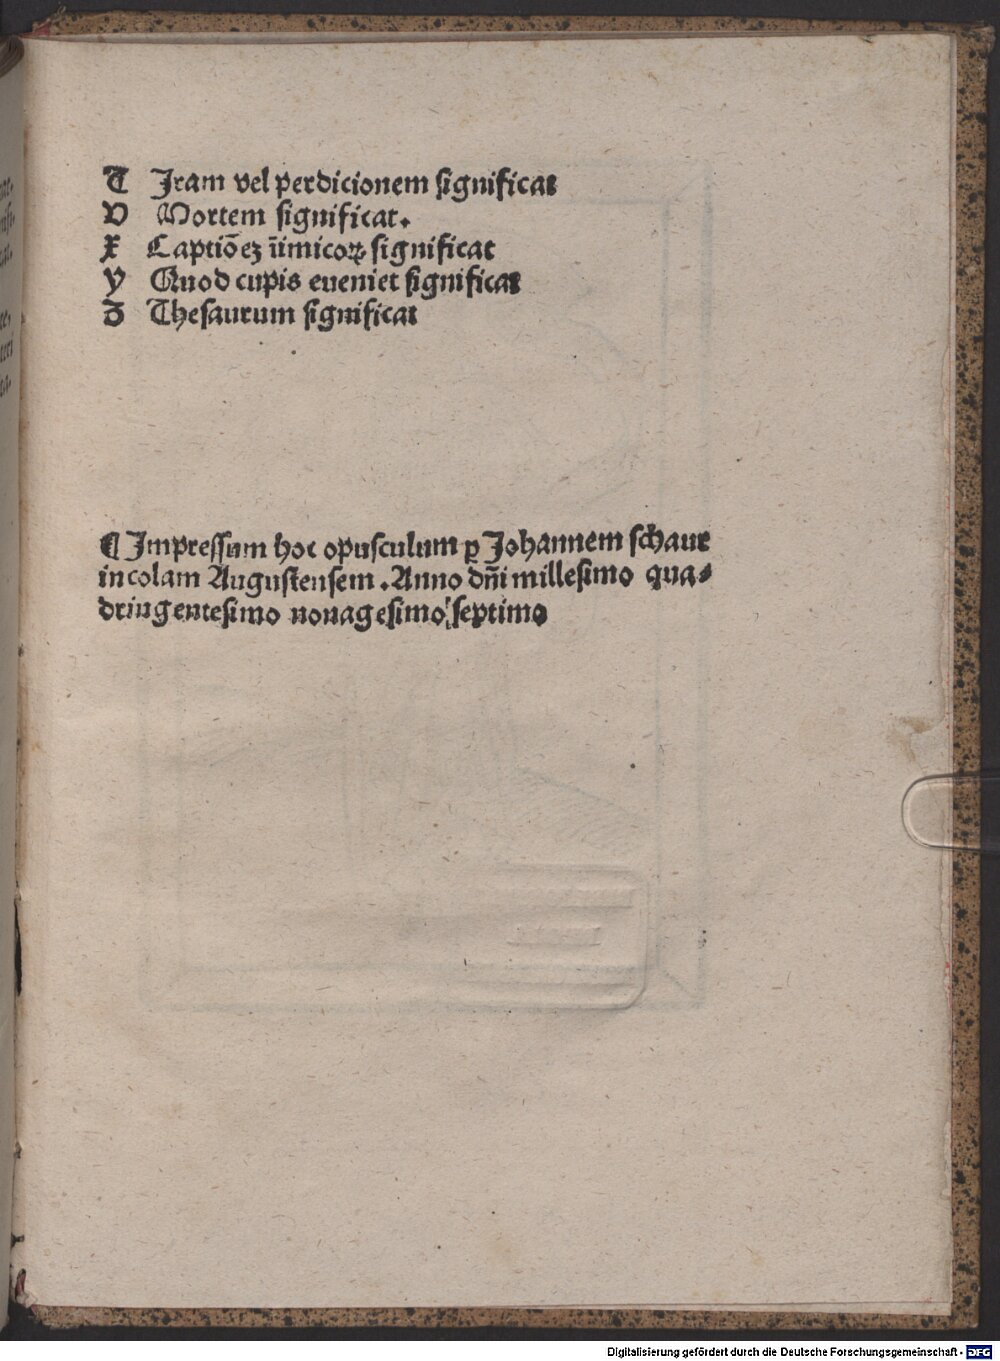 T Iram vel perdicionem significat
V Mortem significat.
X Captiõeʒ īimicoꝝ significat
Y Quod cupis eveniet significat
Z Thesaurum significat
¶ Impressum hoc opusculum ꝑ Johannem schaur
incolam Augustensem. Anno dn̄i millesimo qua⸗
dringentesimo nonagesimo septimo
Digitalisierung gefördert durch die Deutsche Forschungsgemeinschaft - DFG